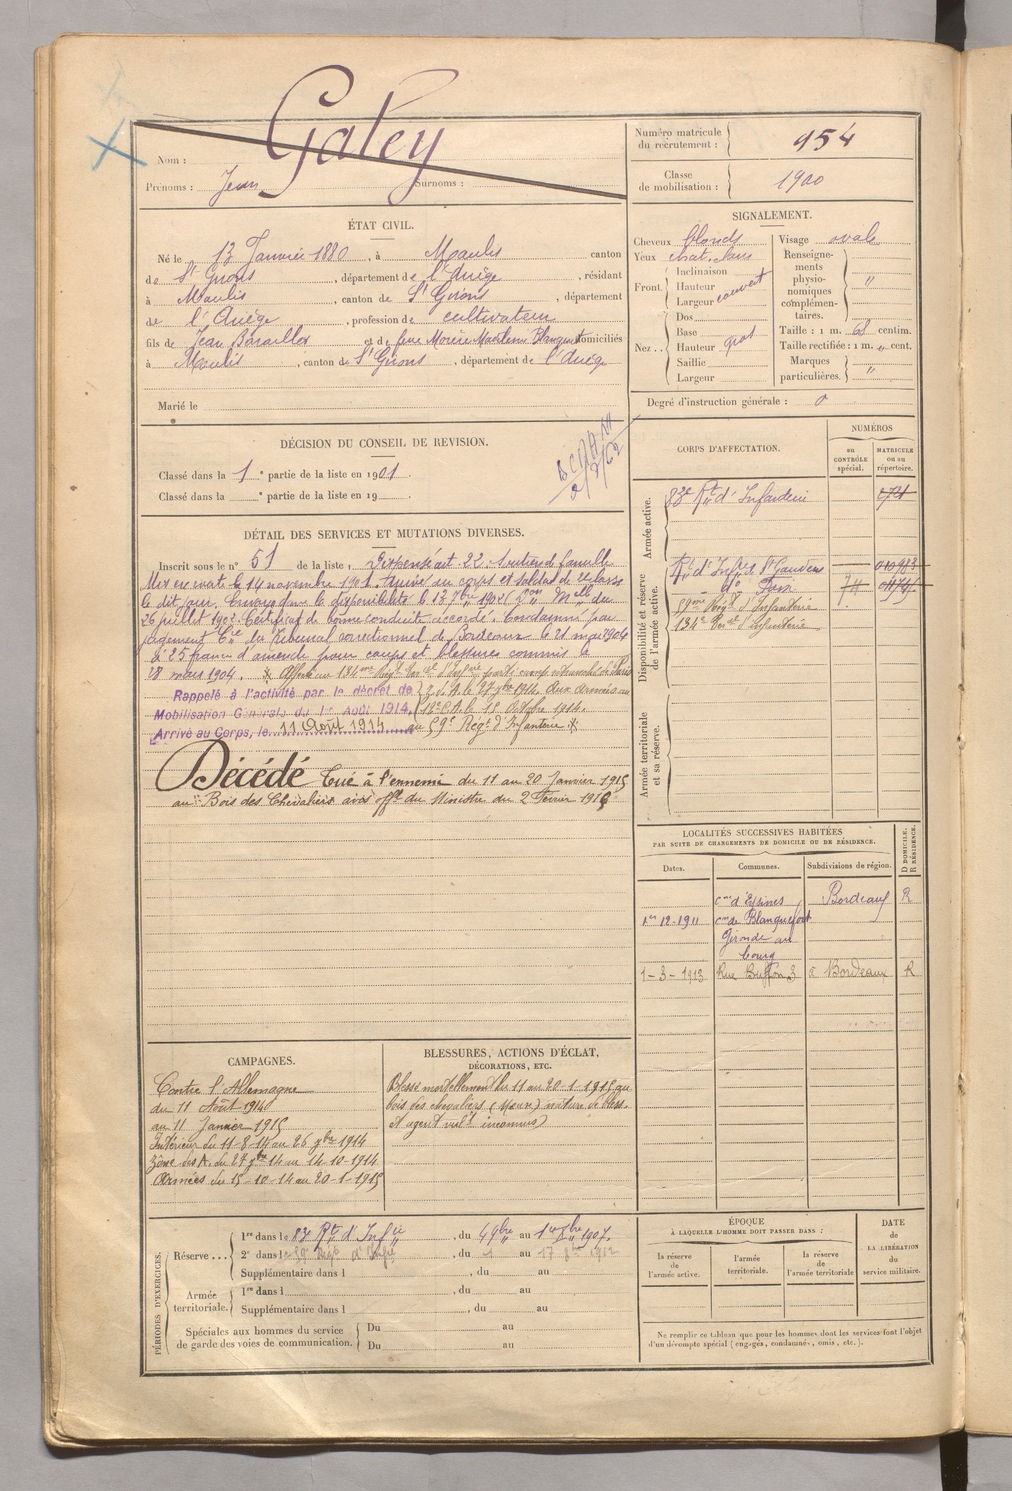 Galey
Nom :
Prénoms : Jean Surnoms :
Numéro matricule du recrutement : 954
Classe de mobilisation : 1900
ÉTAT CIVIL.
Né le 13 Janvier 1880, à Moulis, canton
de St Girons, département de l'Ariège, résidant
à Moulis, canton de St Girons, département
de l'Ariège, profession de cultivateur
fils de Jean et de feue domiciliés
à Moulis, canton de St Girons, département de l'Ariège
Marié le
SIGNALEMENT.
Cheveux blonds
Yeux chat. clairs
Front. Inclinaison
Hauteur
Largeur couvert
Nez.. Dos
Base
Hauteur gros
Saillie
Largeur
Visage ovale
Renseignements physionomiques complémentaires. "
Taille : 1 m. 68 centim.
Taille rectifiée : 1 m. " cent.
Marques particulières. "
Degré d'instruction générale : 0
DÉCISION DU CONSEIL DE REVISION.
Classé dans la 1e partie de la liste en 1901.
Classé dans la e partie de la liste en 19
DÉTAIL DES SERVICES ET MUTATIONS DIVERSES.
Inscrit sous le n° 51 de la liste. Dispensé art. 22. Soutien de famille
Mis en route le 14 novembre 1901. Arrivé au corps et soldat de 2e classe
le dit jour. Envoyé dans la disponibilité le 13 7bre 1902 ( du
26 juillet 1902. Certificat de bonne conduite accordé. Condamné par
jugement du Tribunal correctionnel de Bordeaux le 21 mai 1904
à 25 francs d'amende pour coups et blessures commis le
28 mars 1904. Affecté au 134me Régt d'Infrie camp retranché de Paris
Rappelé à l'activité par le décret de
Mobilisation Générale du 1er Août 1914.
Arrivé au Corps, le 11 Août 1914
Z. d. A. le 27 7bre 1914. Aux armées au
le 15 Octobre 1914.
au 59e Régt d'Infanterie
Décédé Tué à l'ennemi du 11 au 20 Janvier 1915
au Bois des Chevaliers avis offel du Ministre du 2 Février 1915
CORPS D'AFFECTATION.
NUMÉROS
au CONTRÔLE spécial.
MATRICULE ou au répertoire.
Armée active.
83e Rt d'Infanterie
Disponibilité et réserve de l'armée active.
Rt d'Infie St Gaudens
do Foix
59me Régt d'Infanterie
134e d'Infanterie
Armée territoriale et sa réserve.
LOCALITÉS SUCCESSIVES HABITÉES
PAR SUITE DE CHANGEMENTS DE DOMICILE OU DE RÉSIDENCE.
Dates. Communes. Subdivisions de région. D DOMICILE. R RÉSIDENCE.
cne d'Eysines Bordeaux R
1er 12-1911 cne de Blanquefort
Gironde au
bourg
1-3-1913 Rue Buffon 3 à Bordeaux R
CAMPAGNES.
Contre l'Allemagne
du 11 Août 1914
au 11 Janvier 1915
Intérieur du 11-8-14 au 26 7bre 1914
Zône des A. du 27 7bre 14 au 14-10-1914
Armées du 15-10-14 au 20-1-1915
BLESSURES, ACTIONS D'ÉCLAT,
DÉCORATIONS, ETC.
Blessé mortellement du 11 au 20-1-1915 au
bois des chevaliers (Meuse) nature de bless.
et agent vult inconnus)
PÉRIODES D'EXERCICES.
Réserve...
1re dans le 83 Rt d'Infie, du 4 9bre au 1er Xbre 1907.
2e dans le 59e Régt d'Infie, du 1 au 17 1912
Supplémentaire dans l , du au
Armée territoriale.
1re dans l , du au
Supplémentaire dans l , du au
Spéciales aux hommes du service de garde des voies de communication.
Du au
Du au
ÉPOQUE
À LAQUELLE L'HOMME DOIT PASSER DANS :
la réserve de l'armée active.
l'armée territoriale.
la réserve de l'armée territoriale
DATE DE LA LIBÉRATION du service militaire.
Ne remplir ce tableau que pour les hommes dont les services font l'objet
d'un décompte spécial (engagés, condamnés, omis, etc.).